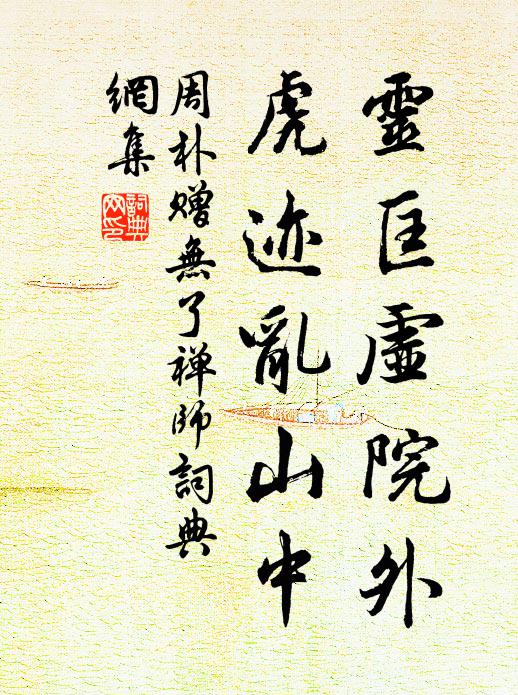 靈匡虛院外
虎迹亂山中
周朴贈無了禅師詞典
網集
詞典
网印